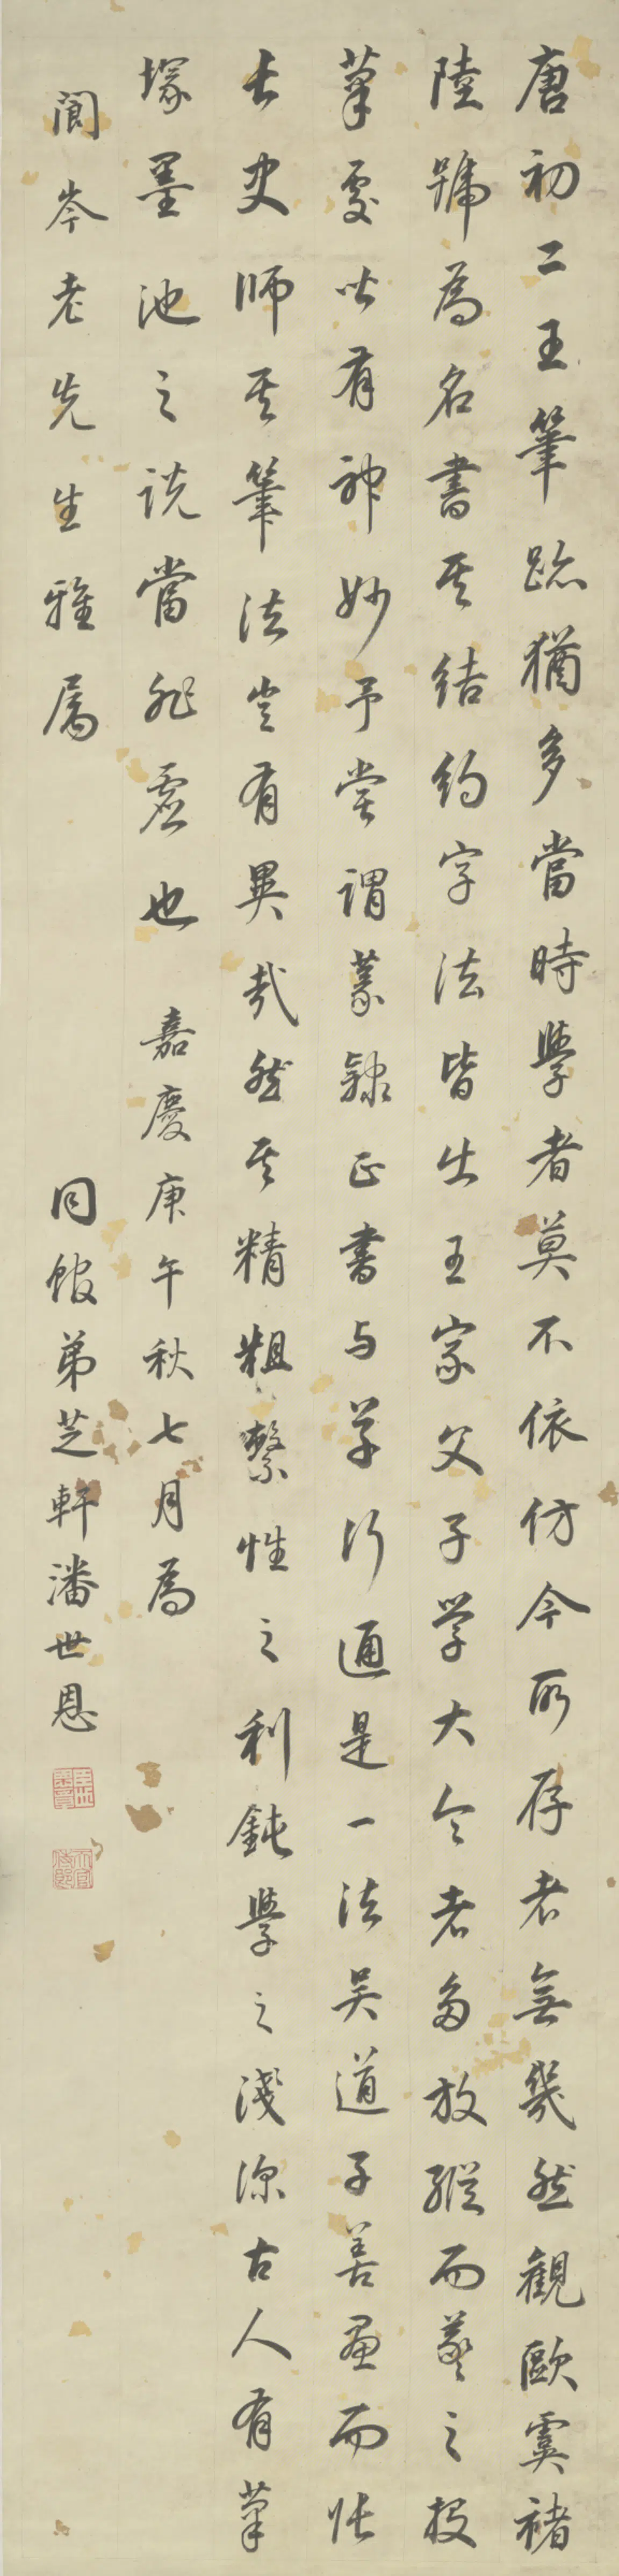 唐初二王筆跡猶多當時學者莫不依仿今所存者無幾然觀歐虞褚
陸號為名書其結約字法皆出王家父子学大令者多放縱而羲之投
筆處皆有神妙予嘗謂篆隸正書与草行通是一法吴道子善畫而張
長史師其筆法豈有異哉然其精粗繫性之利鈍學之淺深古人有筆
塚墨池之説當非虛也 嘉慶庚午秋七月為
閬岑老先生雅屬
同館弟芝軒潘世恩